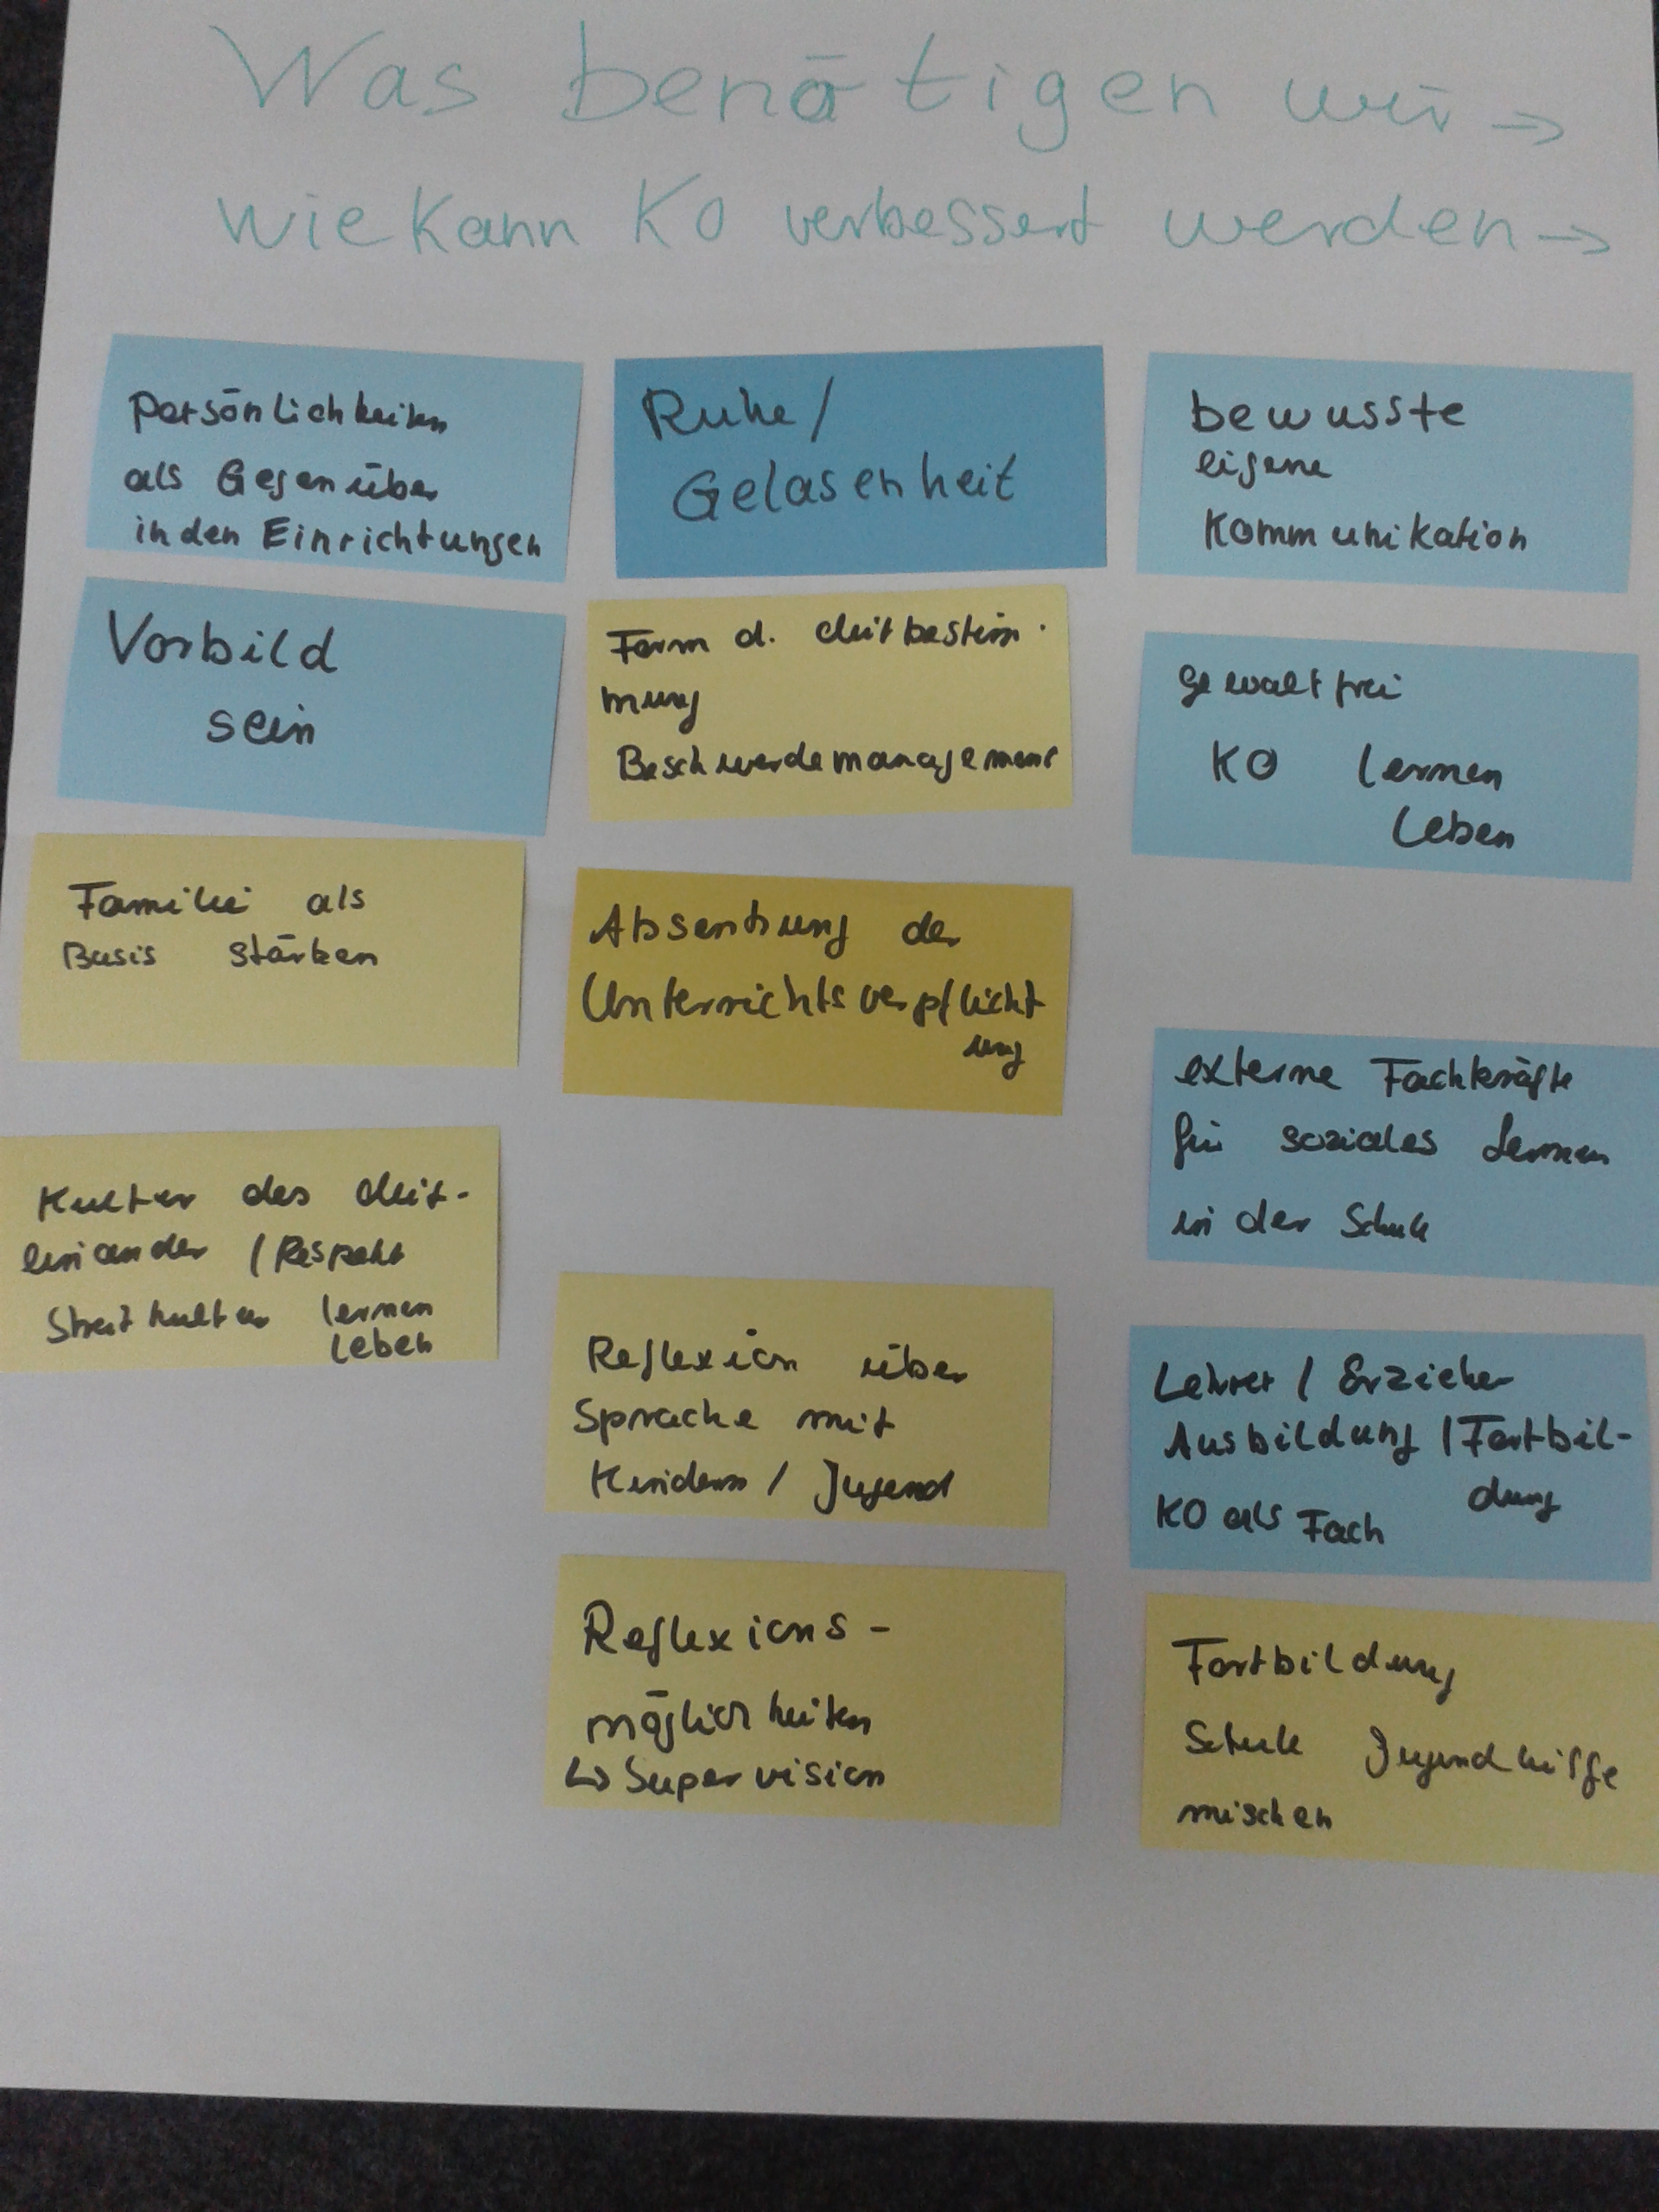 Was benötigen wir →
wie kann KO verbessert werden →
Persönlichkeiten
als Gegenüber
in den Einrichtungen
Vorbild
sein
Familie als
Basis stärken
Kultur des Mit-
einander / Respekt
Streitkultur lernen
leben
Ruhe /
Gelasenheit
Form d. Mitbestim-
mung
Beschwerdemanagement
Absenkung der
Unterrichtsverpflicht
ung
Reflexion über
Sprache mit
Kindern / Jugend
Reflexions-
möglichkeiten
↳ Supervision
bewusste
eigene
Kommunikation
gewaltfrei
KO lernen
leben
externe Fachkräfte
für soziales Lernen
in der Schule
Lehrer / Erzieher
Ausbildung / Fortbil-
dung
KO als Fach
Fortbildung
Schule Jugendhilfe
mischen